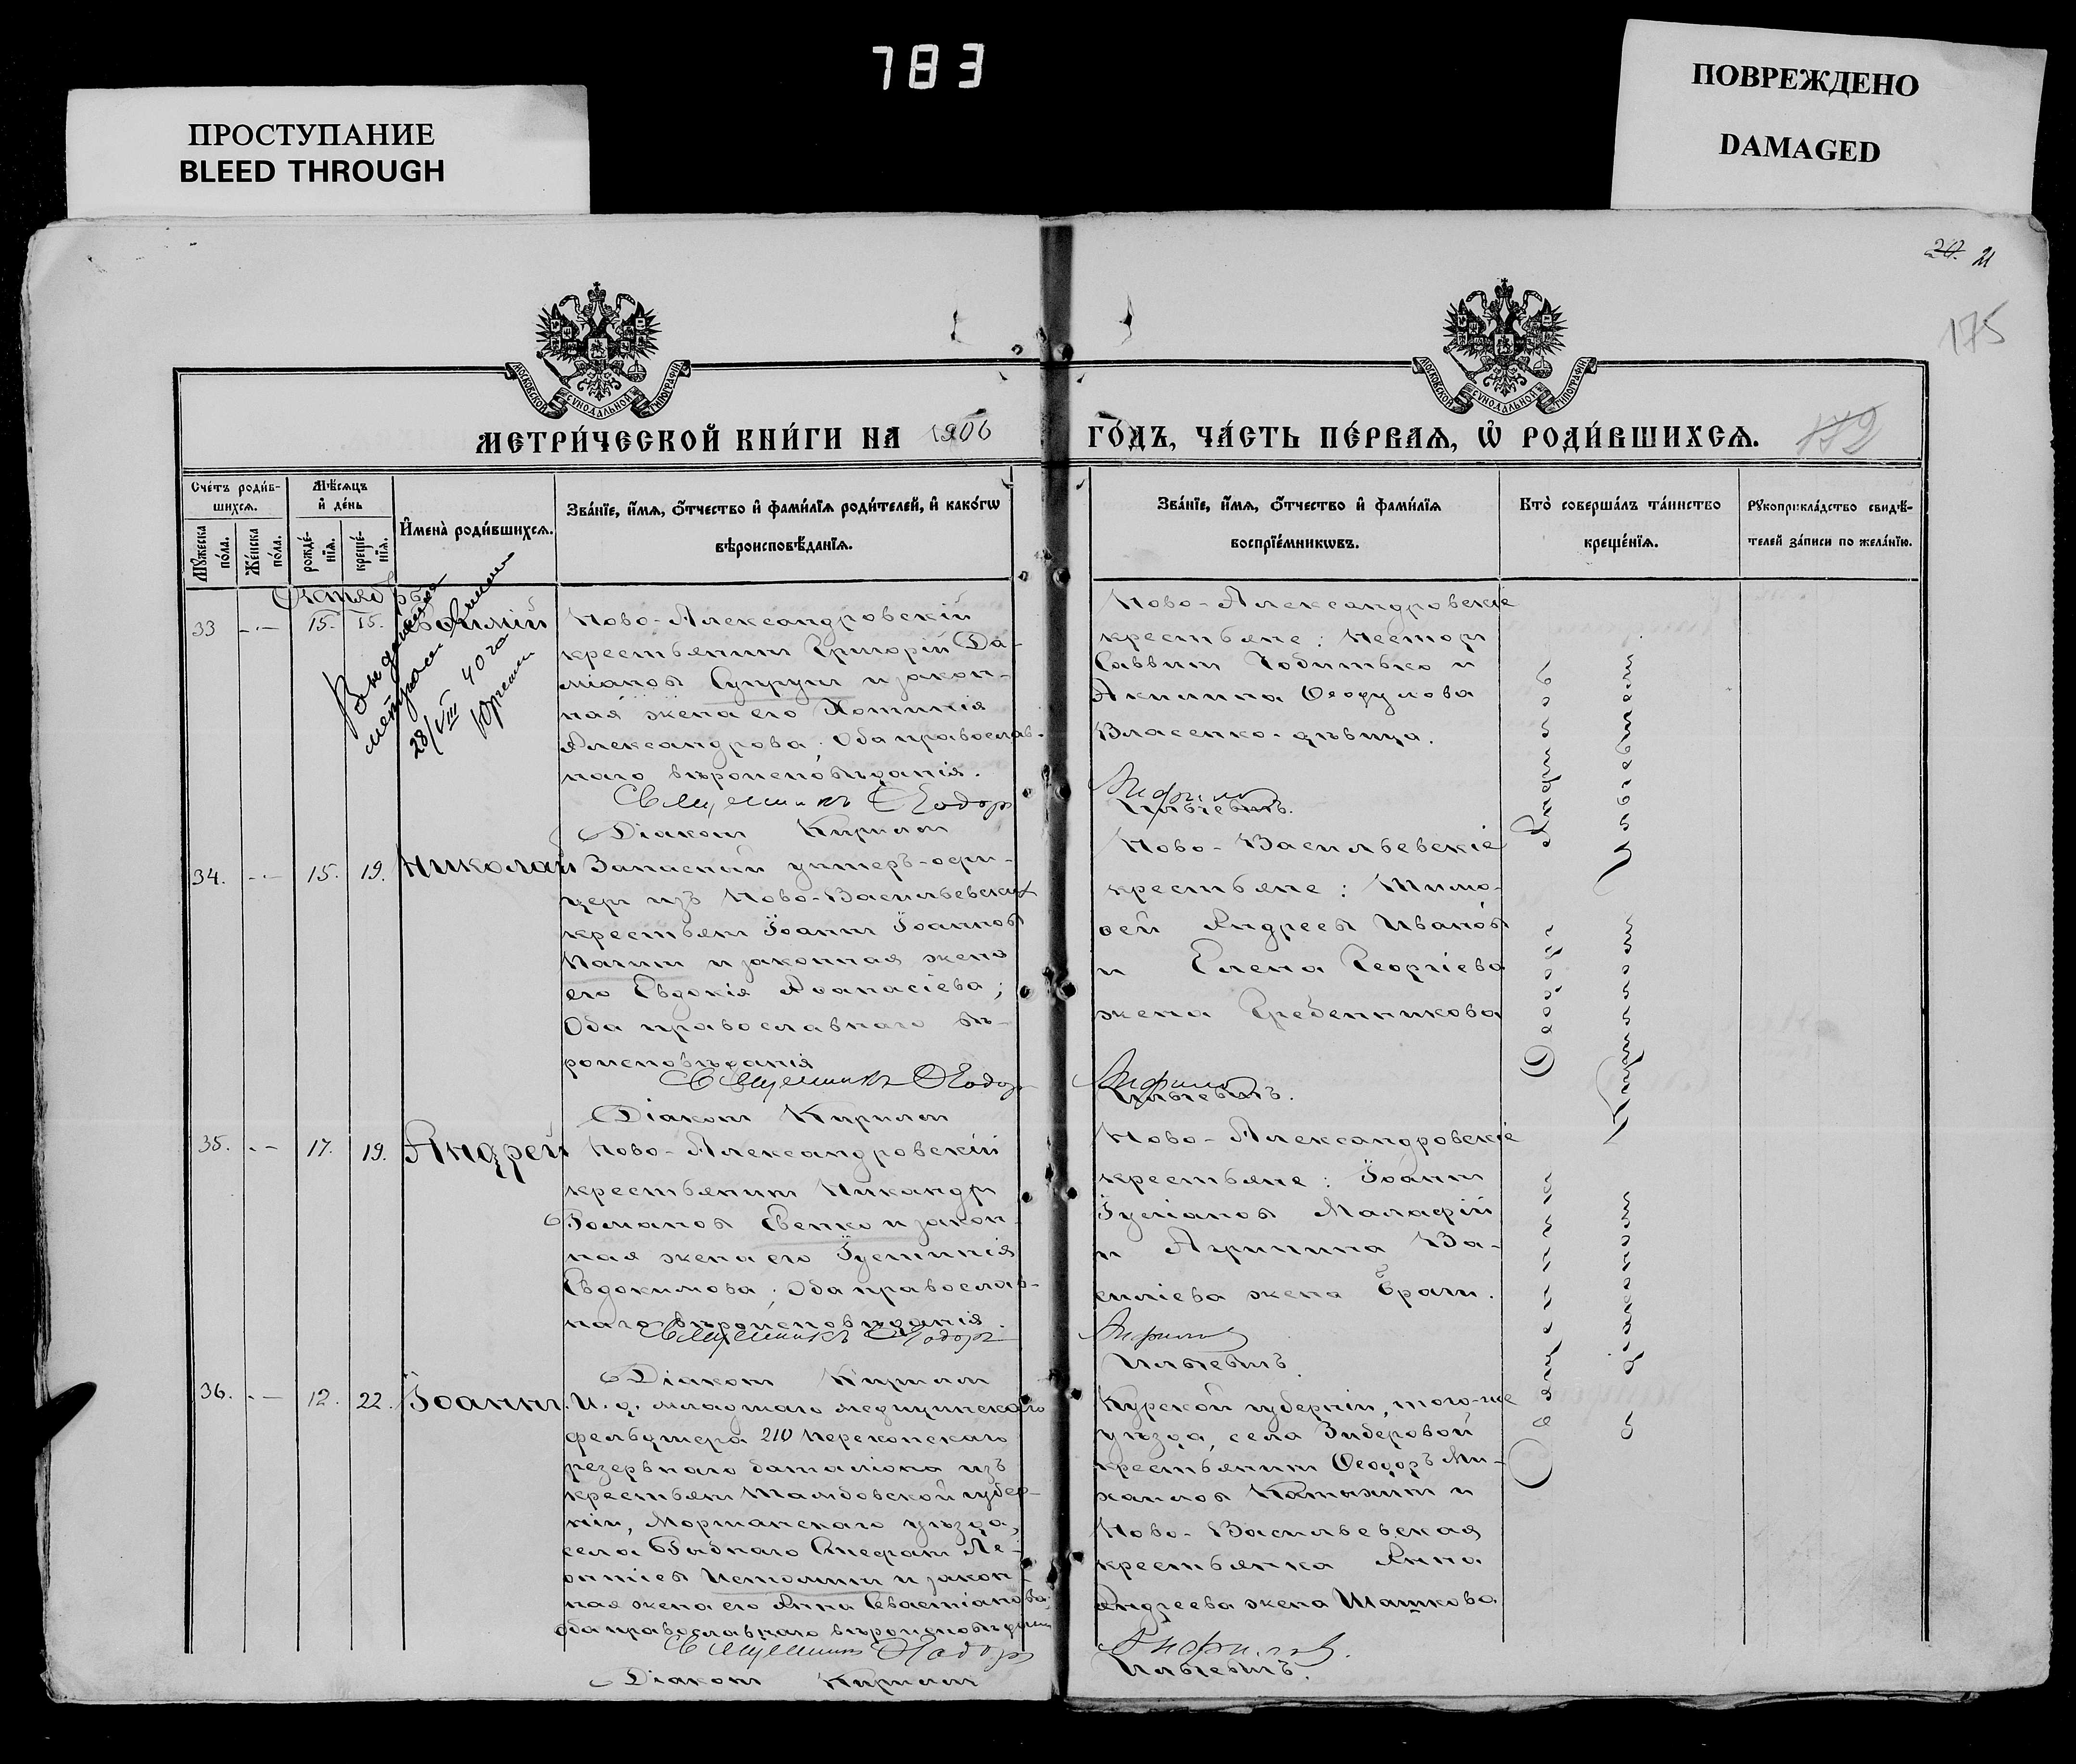 783
ПРОСТУПАНИЕ
BLEED THROUGH
ПОВРЕЖДЕНО
DAMAGED
20. 21
175
МОСКОВСКОЙ СУНОДАЛЬНОЙ ТИПОГРАФІИ
МОСКОВСКОЙ СУНОДАЛЬНОЙ ТИПОГРАФІИ
МЕТРИ́ЧЕСКОЙ КНИ́ГИ НА 1906 ГО́ДЪ, ЧА́СТЬ ПЕ́РВАѦ, Ѡ҆ РОДИ́ВШИХСѦ.
172
Сче́тъ роди́в-
шихсѧ.
Мꙋжеска по́ла.
Же́нска по́ла.
Мѣ́сѧцъ
и҆ де́нь
рожде́-
нїѧ.
креще́-
нїѧ.
И҆мена̀ роди́вшихсѧ.
Зва́нїе, и҆́мѧ, ѻ҆́тчество и҆ фами́лїѧ роди́телей, и҆ како́гѡ
вѣроисповѣ́данїѧ.
Зва́нїе, и҆́мѧ, ѻ҆́тчество и҆ фами́лїѧ
воспрїе́мникѡвъ.
Кто̀ соверша́лъ та́инство
креще́нїѧ.
Рꙋкоприкла́дство свидѣ́-
телей за́писи по жела́нїю.
Октябрь
33 - - 15. 15.
Выдана
метрика
28/VIII 40 го
Ново-Александровскій
крестьянинъ Григорій Да-
міановъ Супрунъ и закон-
ная жена его Фотинія
Александрова; Оба православ-
наго вѣроисповѣданія.
Священникъ Ѳеодоръ
Діаконъ Кириллъ
Ново-Александровскіе
крестьяне: Несторъ
Саввинъ Чобитько и
Акилина Ѳеодулова
Власенко-дѣвица.
Анфиловъ
Ильевичъ.
34. - - 15. 19. Николай
Запасный унтеръ-офи-
церъ изъ Ново-Васильевскихъ
крестьянъ Іоаннъ Іоанновъ
и законная жена
его Евдокія Аѳанасіева;
Оба православнаго вѣ-
роисповѣданія
Священникъ Ѳеодоръ
Діаконъ Кириллъ
Ново-Васильевскіе
крестьяне: Тимо-
ѳей Андреевъ Ивановъ
и Елена Георгіева
жена Гребенникова
Анфиловъ
Ильевичъ.
35. - - 17. 19. Андрей
Ново-Александровскій
крестьянинъ Никандръ
Романовъ Евенко и закон-
ная жена его Іустинія
Евдокимова; Оба православ-
наго вѣроисповѣданія.
Священникъ Ѳеодоръ
Діаконъ Кириллъ
Ново-Александровскіе
крестьяне: Іоаннъ
Іуліановъ Малафій
и Агрипина Ва-
силіева жена Ерати.
Анфиловъ
Ильевичъ
36. - - 12. 22. Іоаннъ.
И. д. младшаго медицинскаго
фельдшера 210 Перекопскаго
резервнаго баталіона изъ
крестьянъ Тамбовской губер-
ніи, Моршанскаго уѣзда,
села Стефанъ Ле-
онтіевъ Истоминъ и закон-
ная жена его Анна Севастіанова;
оба православнаго вѣроисповѣданія
Священникъ Ѳеодоръ
Діаконъ Кириллъ
Курской губерніи, того-же
уѣзда, села Зиборовой
крестьянинъ Ѳеодоръ Ми-
хаиловъ и
Ново-Васильевская
крестьянка Анна
Андреева жена Шашкова
Анфиловъ.
Ильевичъ.
Священникъ Ѳеодоръ Анфиловъ
съ діакономъ Кирилломъ Ильевичемъ.